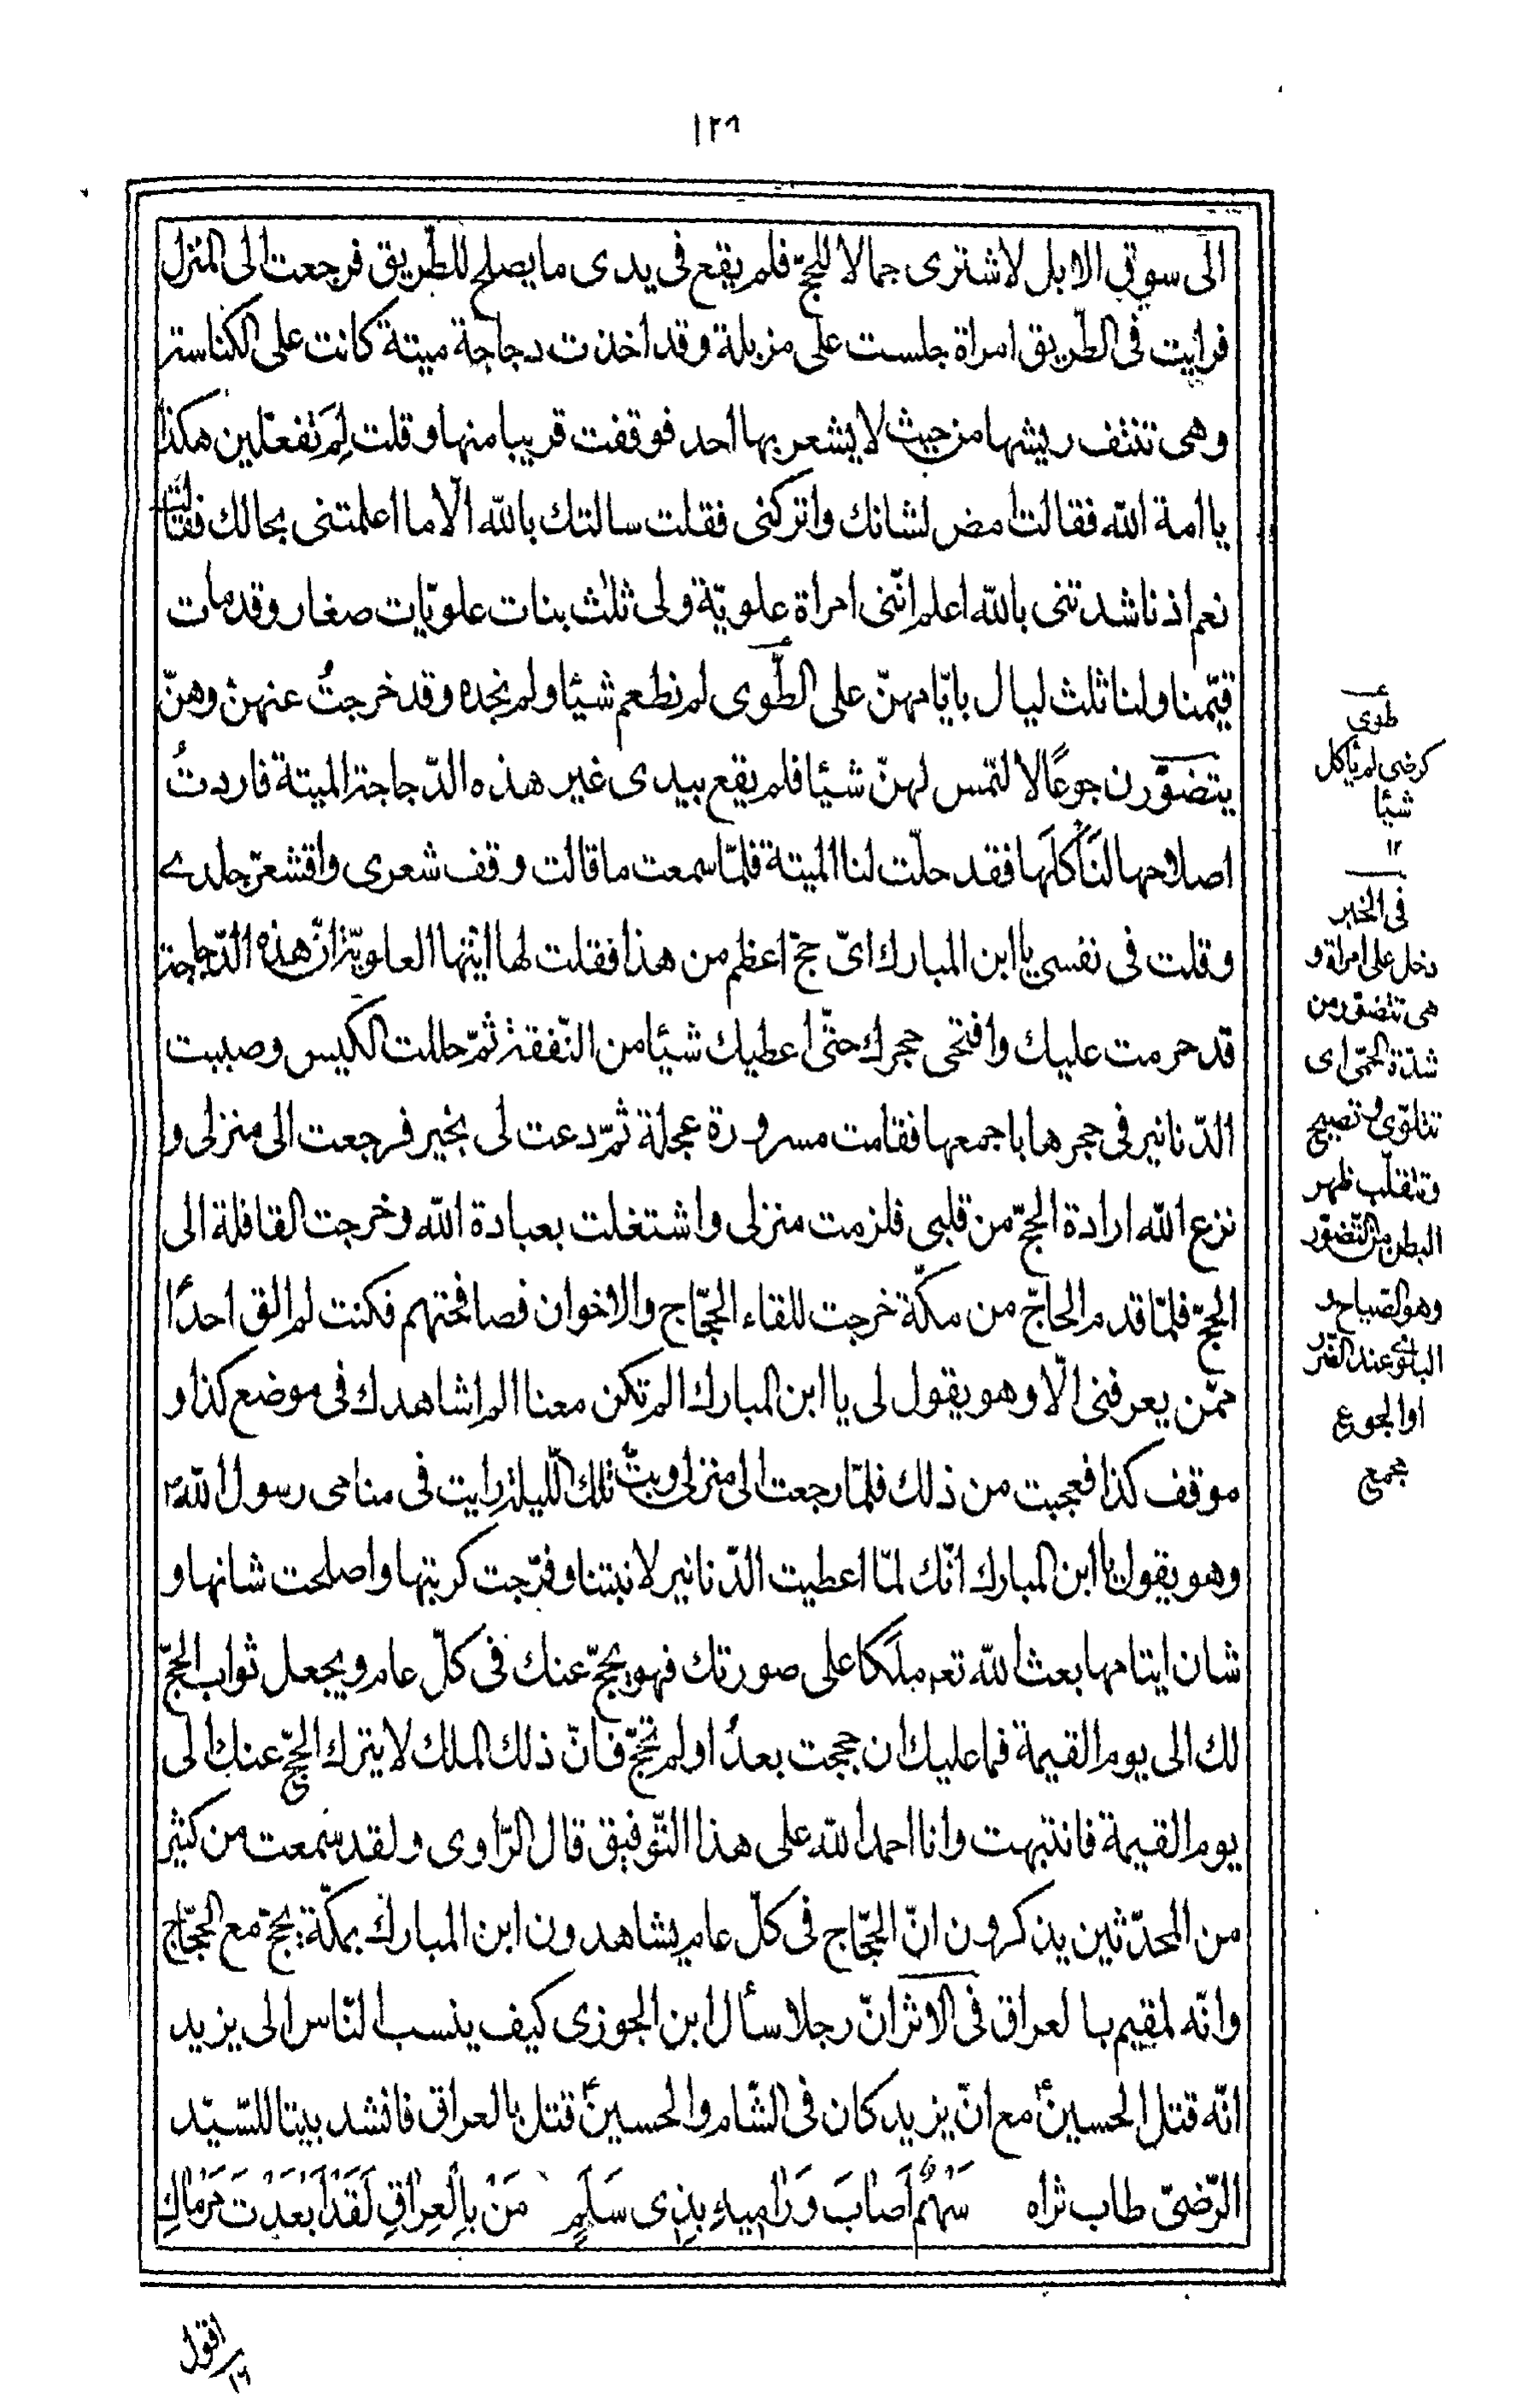 ١٢٦
الى سوق الابل لاشترى جمالا للحجّ فلم يقع فى يدى ما يصلح للطّريق فرجعت الى المنزل
فرايت فى الطّريق امراة جلست على مزبلة وقد اخذت دجاجة ميتة كانت على الكناسة
وهى تنتف ريشها من حيث لا يشعر بها احد فوقفت قريبا منها وقلت لِمَ تفعلين هكذا
يا امة اللّه فقالت امض لشانك واتركنى فقلت سالتك باللّه الّا ما اعلمتنى بحالك فقالت
نعم اذ ناشدتنى باللّه اعلم انّنى امراة علويّة ولى ثلث بنات علويّات صغار وقد مات
قيّمنا ولنا ثلث ليال بايّامهنّ على الطّوى لم نطعم شيئا ولم نجده وقد خرجتُ عنهنّ وهنّ
يتضوّرن جوعًا لا لتمس لهنّ شيئا فلم يقع بيدى غير هذه الدّجاجة الميتة فاردتُ
اصلاحها لنَاكلَها فقد حلّت لنا الميتة فلمّا سمعت ما قالت وقف شعرى واقشعرّ جلدے
وقلت فى نفسى يا ابن المبارك اىّ حجّ اعظم من هذا فقلت لها ايّتها العلويّة انّ هذه الدّجاجة
قد حرمت عليك وافتحى حجرك حتّى اعطيك شيئا من النّفقة ثمّ حللت الكيس وصببت
الدّنانير فى حجرها باجمعها فقامت مسرورة عجلة ثمّ دعت لى بخير فرجعت الى منزلى و
نزع اللّه ارادة الحجّ من قلبى فلزمت منزلى واشتغلت بعبادة اللّه وخرجت القافلة الى
الحجّ فلمّا قدم الحاجّ من مكّة خرجت للقاء الحجّاج والاخوان فصافحتهم فكنت لم الق احدًا
ممّن يعرفنى الّا وهو يقول لى يا ابن المبارك الم تكن معنا الم اشاهدك فى موضع كذا و
موقف كذا فعجبت من ذلك فلمّا رجعت الى منزلى وبتّ تلك اللّيلة رايت فى منامى رسول اللّه ص
وهو يقول يا ابن المبارك انّك لمّا اعطيت الدّنانير لابنتنا وفرّجت كربتها واصلحت شانها و
شان ايتامها بعث اللّه تعم ملَكا على صورتك فهو يحجّ عنك فى كلّ عام ويجعل ثواب الحجّ
لك الى يوم القيمة فما عليك ان حججت بعدُ او لم تحجّ فانّ ذلك الملك لا يترك الحجّ عنك الى
يوم القيمة فانتبهت وانا احمد اللّه على هذا التّوفيق قال الرّاوى ولقد سمعت من كثير
من المحدّثين يذكرون انّ الحجّاج فى كلّ عام يشاهدون ابن المبارك بمكّة يحجّ مع الحجّاج
وانّه لمقيم بالعراق فى الاثر انّ رجلا سأل ابن الجوزى كيف ينسب النّاس الى يزيد
انّه قتل الحسينؑ مع انّ يزيد كان فى الشّام والحسينؑ قتل بالعراق فانشد بيتا للسّيّد
الرّضىّ طاب ثراه سَهْمٌ اَصَابَ وَرَامِيهِ بِذِى سَلَمٍ مَنْ بِالْعِرَاقِ لَقَدْ اَبْعَدْتَ مَرْمَاكِ
طوى
كرضى لم ياكل
شيئا
١٢
فى الخبر
دخل على امراة و
هى تتضوّر من
شدّة الحمّى اى
تتلوّى وتصيح
وتتقلّب ظهر
البطن من التّضوّر
وهو الصّياح و
التلوّى عند الضّر
او الجوع
مجمع
اقول
١٢